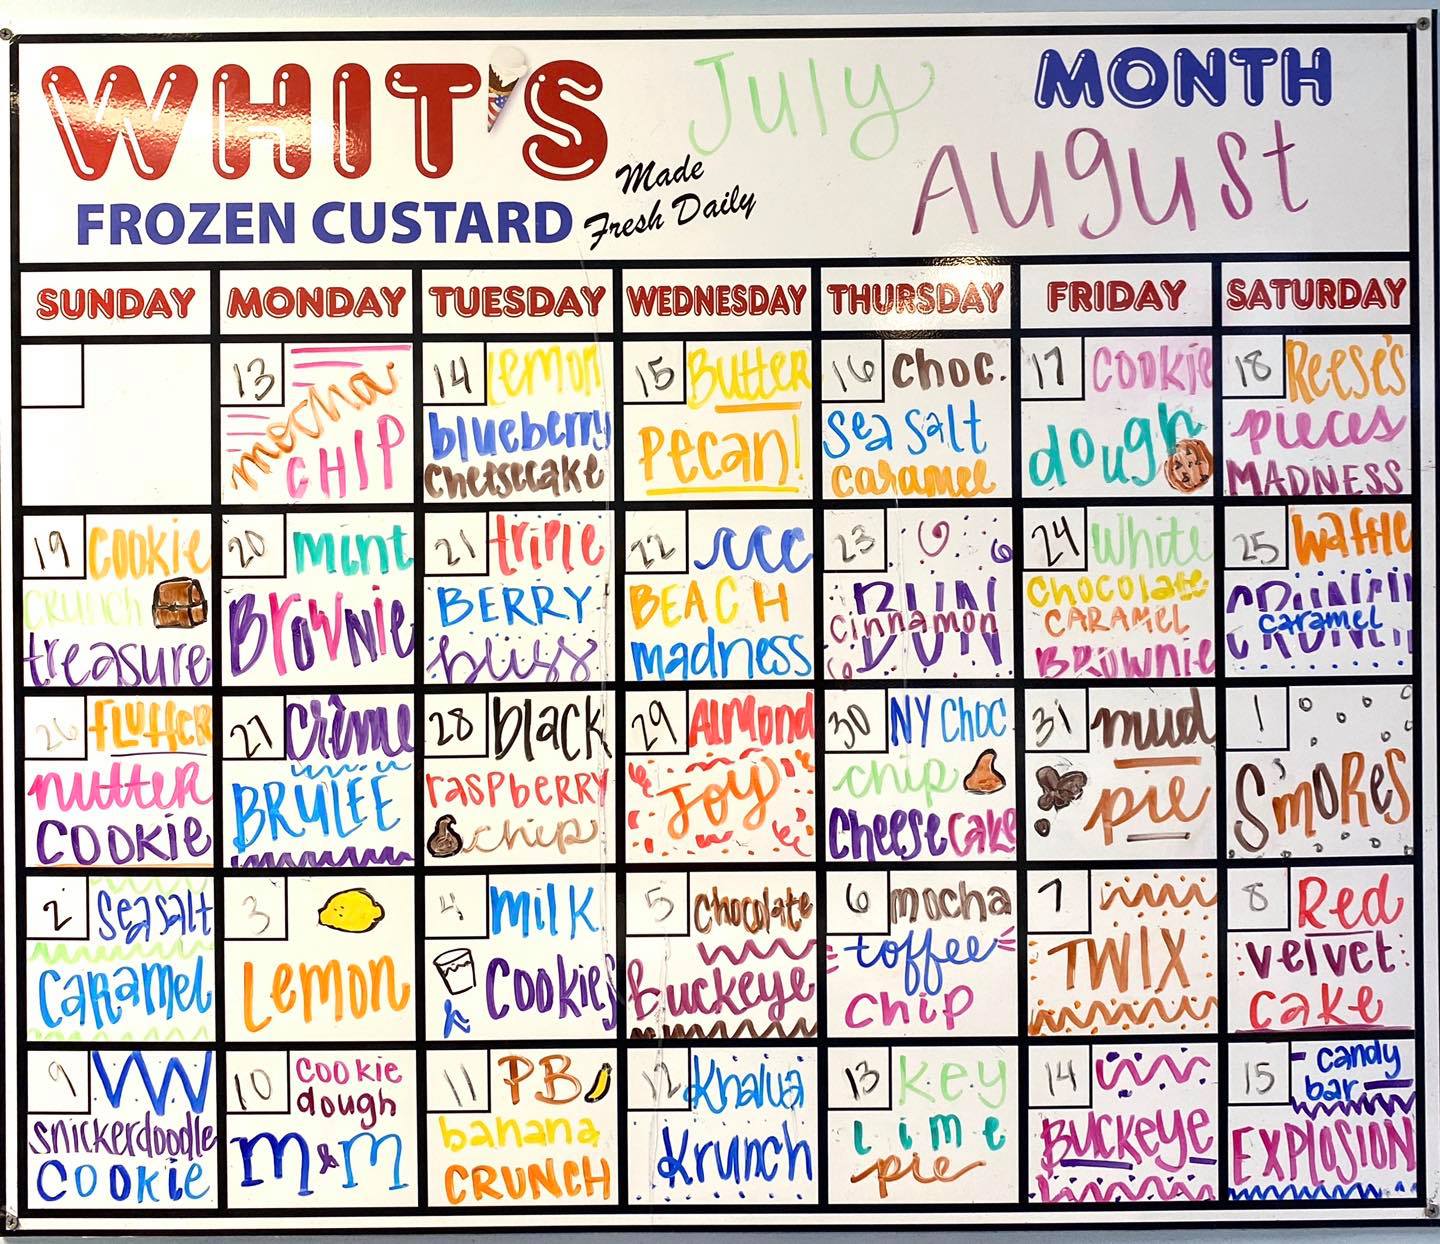 WHIT'S
FROZEN CUSTARD
Made
Fresh Daily
July
MONTH
August
SUNDAY MONDAY TUESDAY WEDNESDAY THURSDAY FRIDAY SATURDAY
13
mocha
CHIP
14 lemon
blueberry
cheesecake
15 Butter
Pecan!
16 choc.
Sea Salt
caramel
17 cookie
dough
18 Reese's
pieces
MADNESS
19 cookie
crunch
treasure
20 mint
Brownie
21 triple
BERRY
bliss
22
BEACH
madness
23
BUN
cinnamon
24 white
chocolate
CARAMEL
BROWNIE
25 waffle
CRUNCH
caramel
26 fluffer
nutter
COOKIE
27 Crème
BRULEE
28 black
raspberry
chip
29 AlMond
Joy
30 NY Choc
chip
Cheesecake
31 mud
pie
1
S'mORes
2 Seasalt
Caramel
3
Lemon
4 milk
& Cookies
5 Chocolate
Buckeye
6 mocha
toffee
chip
7
TWIX
8 Red
velvet
cake
9
snickerdoodle
Cookie
10 cookie
dough
m&m
11 PB
banana
CRUNCH
12 Khalua
Krunch
13 key
lime
pie
14
Buckeye
15 candy
bar
EXPLOSION